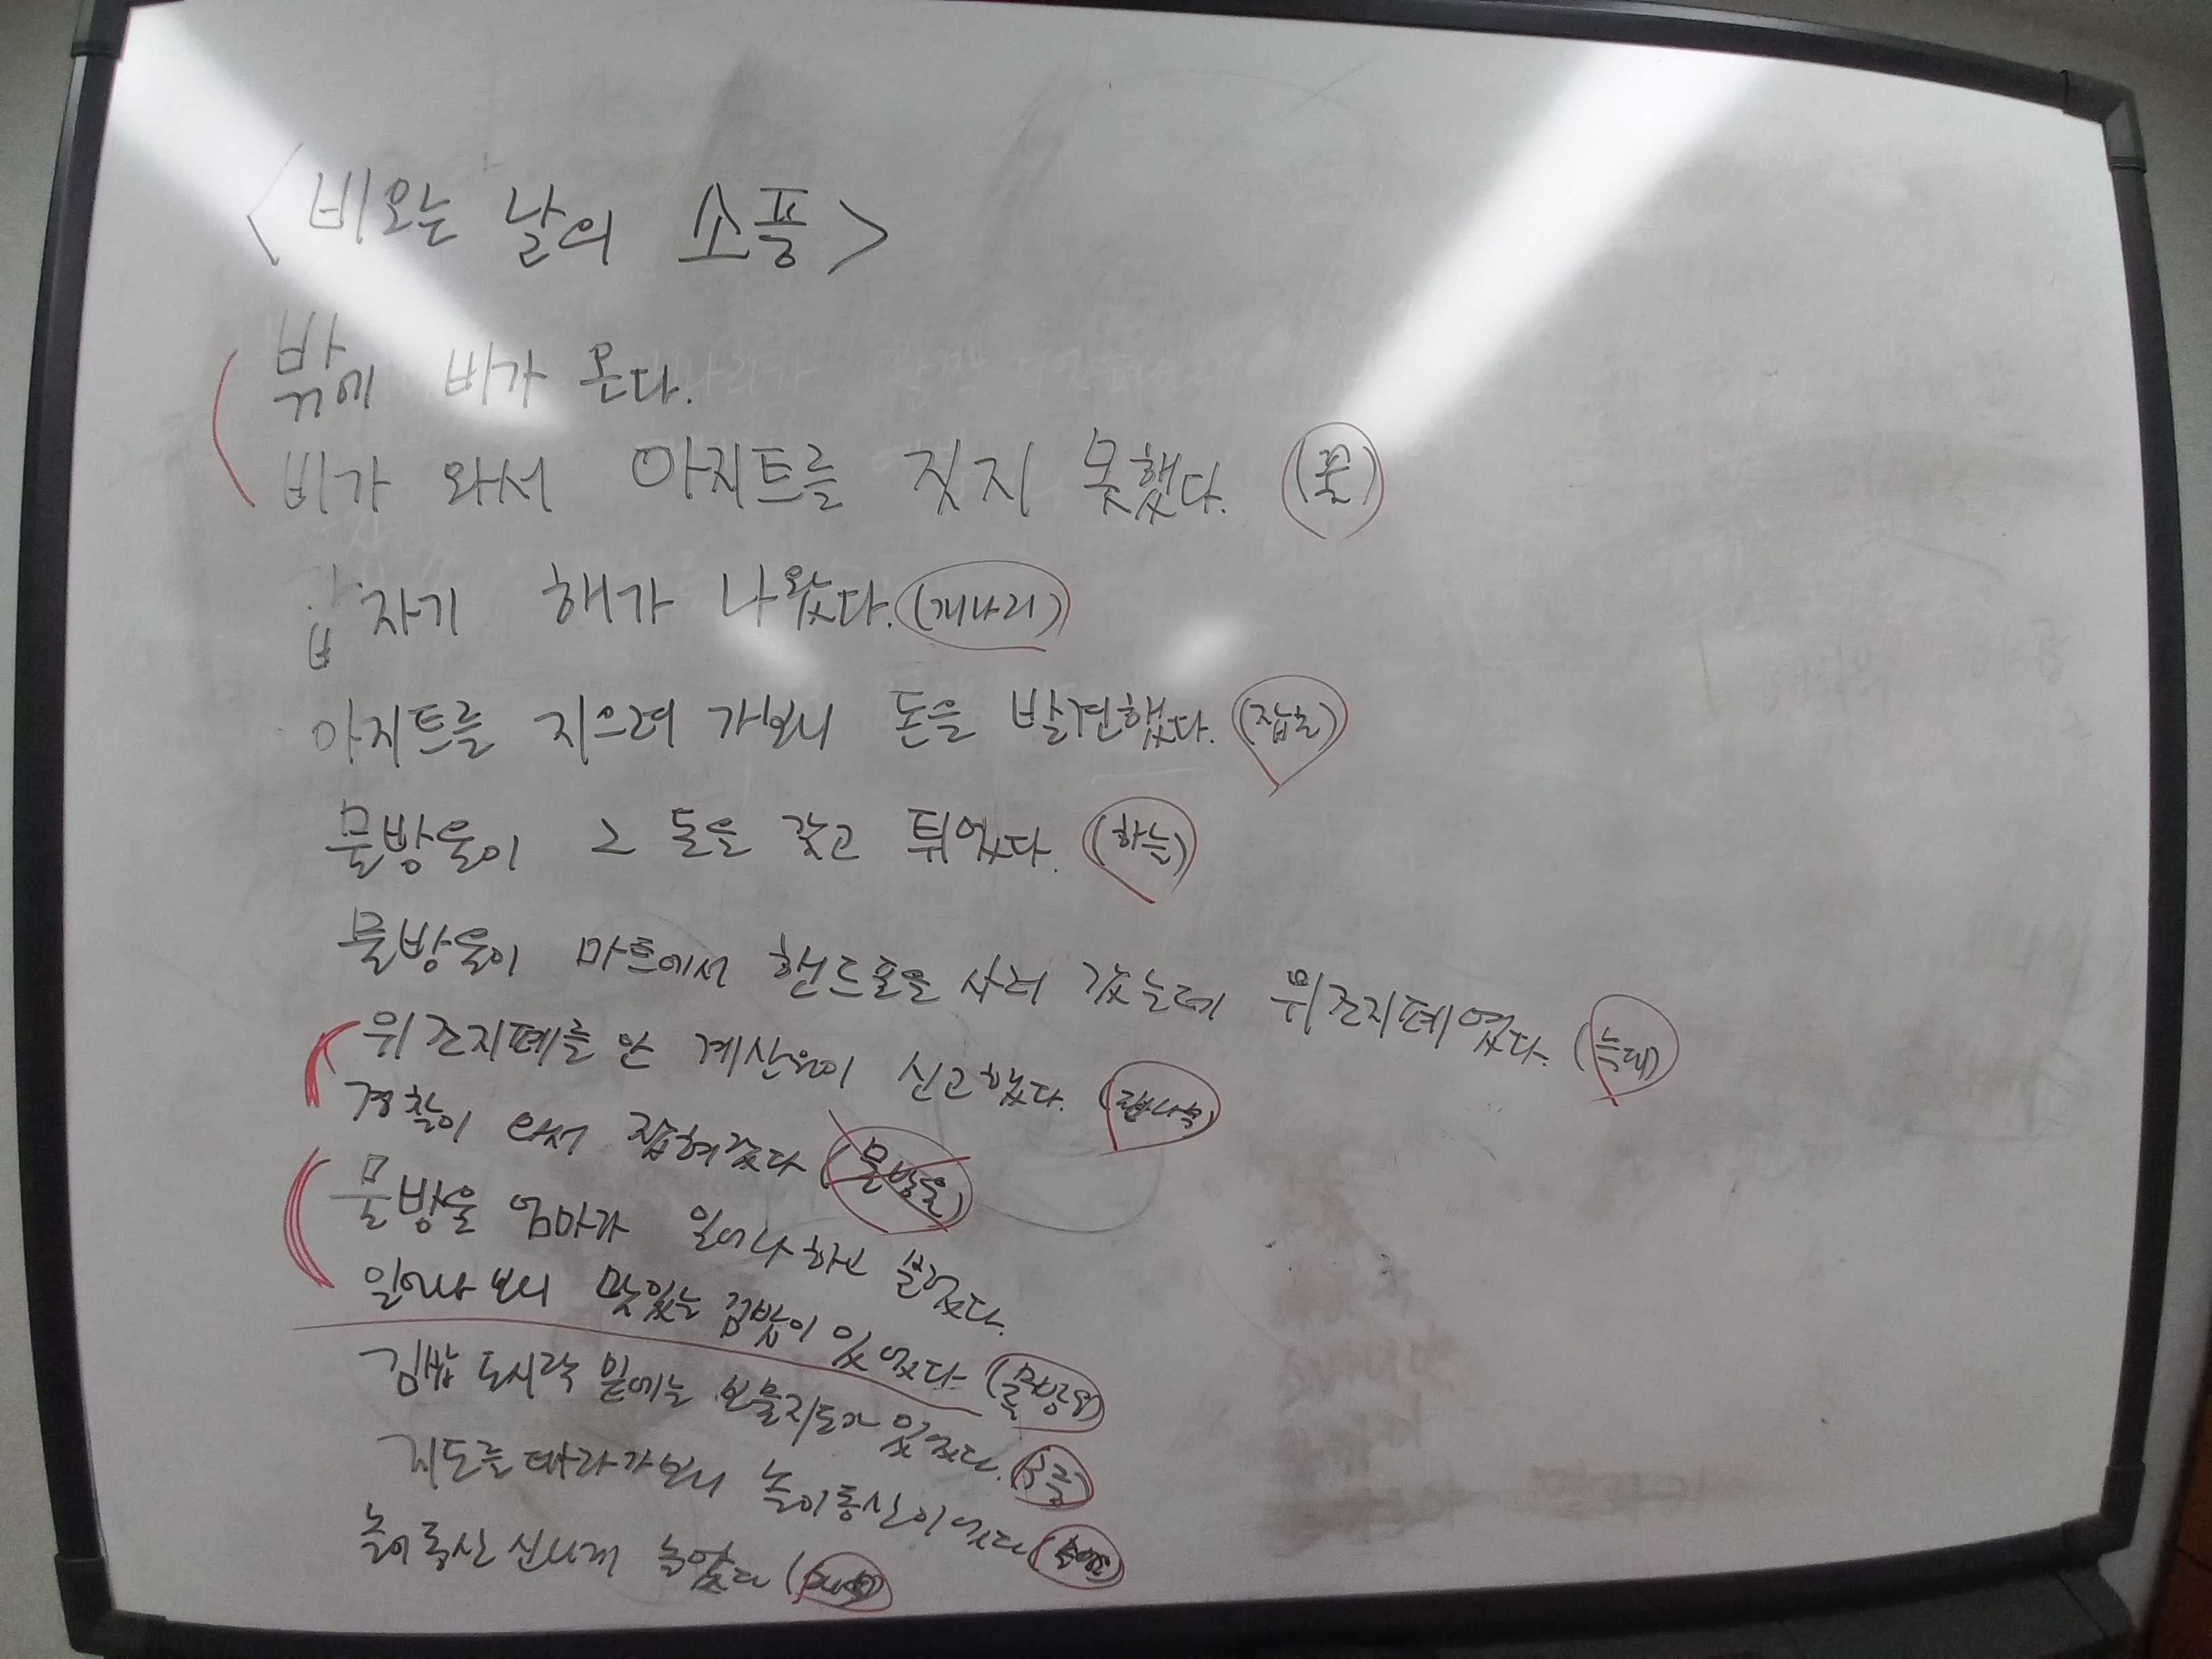 <비오는 날의 소풍>
밖에 비가 온다.
비가 와서 아지트를 짖지 못했다. (꽃)
갑자기 해가 나왔다. (개나리)
아지트를 지으려 가보니 돈을 발견했다. (잡초)
물방울이 그 돈을 갖고 튀었다. (하늘)
물방울이 마트에서 핸드폰을 사러 갔는데 위조지폐였다. (늑대)
위조지폐를 안 계산원이 신고했다.
경찰이 와서 잡혀갔다 (물방울)
물방울 엄마가 일어나 하고 불렀다.
일어나 보니 맛있는 김밥이 있었다 (물방울)
김밥 도시락 밑에는 보물지도가 있었다.
지도를 따라가보니 놀이동산이었다
놀이동산 신나게 놀았다